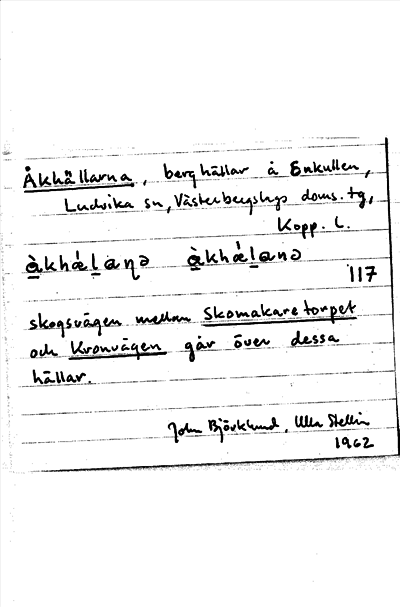 Åkhällarna, berghällar å Enkullen,
Ludvika sn, Västerbergslags doms. tg,
Kopp. l.
117
skogsvägen mellan Skomakaretorpet
och Kronvägen går över dessa
hällar.
John Björklund, Ulla Stellin
1962